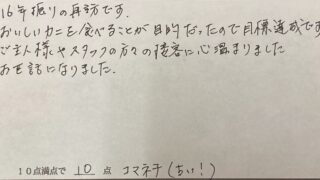 16年振りの再訪です.
おいしいカニを食べることが目的だったので目標達成です
ご主人様やスタッフの方々の接客に心温まりました
お世話になりました.
10点満点で 10 点 コマネチ(ちい!)